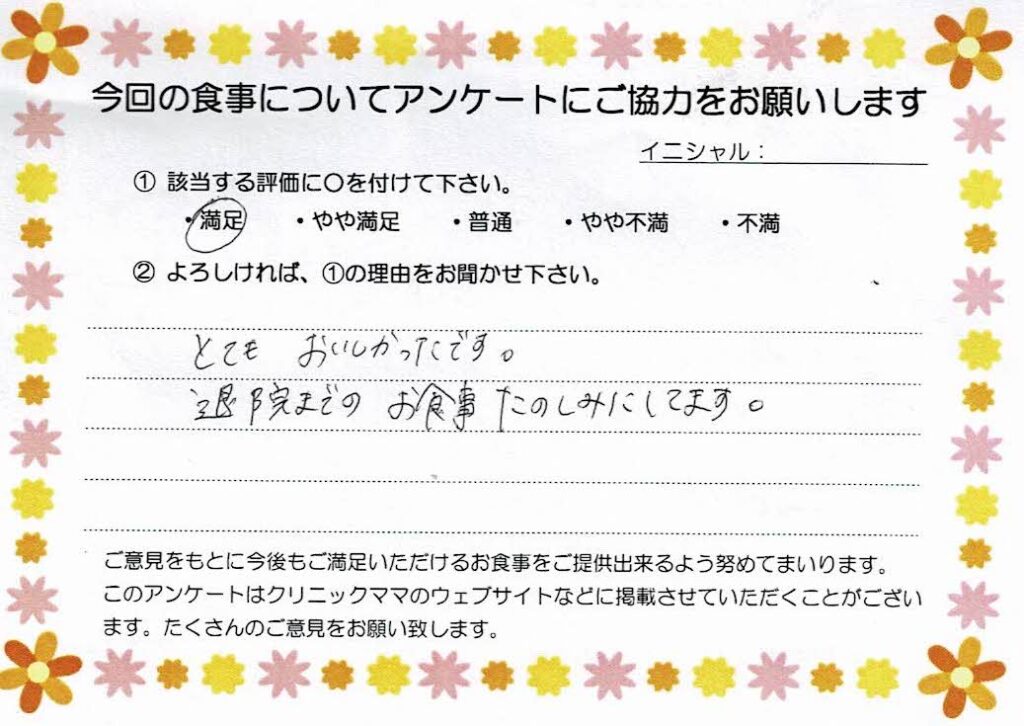 今回の食事についてアンケートにご協力をお願いします
イニシャル：
① 該当する評価に〇を付けて下さい。
・満足 ・やや満足 ・普通 ・やや不満 ・不満
② よろしければ、①の理由をお聞かせ下さい。
とても おいしかったです。
退院までの お食事 たのしみにしてます。
ご意見をもとに今後もご満足いただけるお食事をご提供出来るよう努めてまいります。
このアンケートはクリニックママのウェブサイトなどに掲載させていただくことがござい
ます。たくさんのご意見をお願い致します。